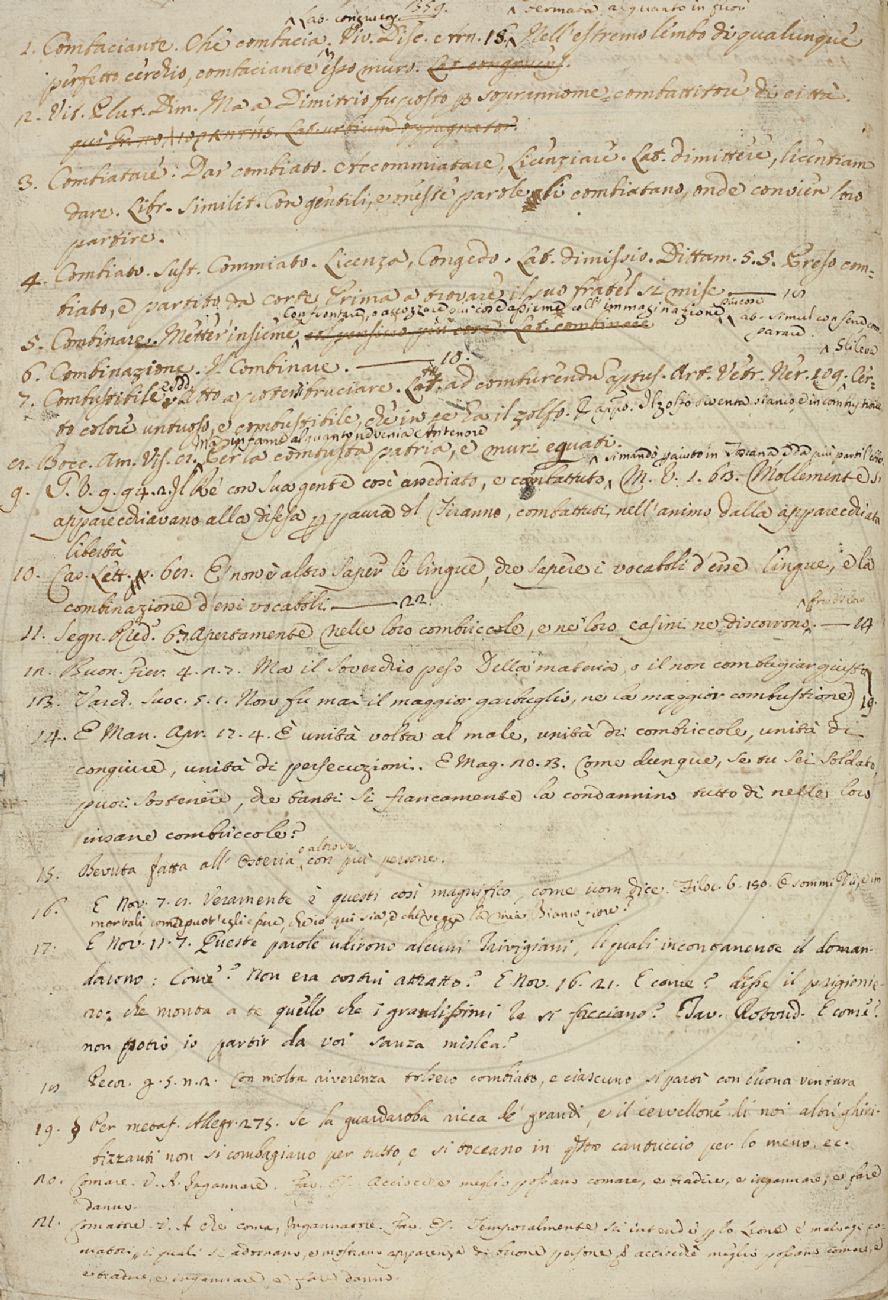 Lat. congruens. 1559. fermata alquanto in fuori
1. Combaciante. Che combacia. Viv. Disc. Arn. 18. Nell'estremo limbo di qualunque
perfetto cerchio, combaciante esso muro. Lat. congruens.
2. Vit. Plut. Dim. Ma a Dimitrio fu posto p soprannome combattitore di città.
Lat. urbium expugnator.
3. Combiatare. Dar combiato. Accommiatare, Licenziare. Lat. dimittere, licentiam
dare. Libr. Similit. Con gentili, e oneste parole li combiatano, onde convien loro
partire.
4. Combiato. Sust. Commiato. Licenza, Congedo. Lat. dimissio. Dittam. 5. 5. Preso com-
biato, e partito da corte Prima a trovare il suo fratel si mise
Confrontare, o accozzare più cose assieme coll'immaginazione Lat. simul conferre, com
parare
5. Combinare. Metter insieme, Lat. combinare
6. Combinazione. V. Combinare. 10.
7. Combustibile add. Atto a potersi bruciare. Lat. ad comburendum aptus. Art. Vetr. Ner. 109.
to colore untuoso, e combustibile, che in se ha il zolfo.
8. Bocc. Am. Vis. Per la combusta patria, e muri equati.
si mandò p aiuto in Toscana
9. G. V. 9. 94. 2. Il Re con sua gente così assediato, e combattuto, M. V. 1. 63. Mollemente si
apparecchiavano alla difesa p paura del Tiranno, combattuti nell'animo dalla apparecchiata
libertà
10. Cas. Lett. 62. E' non è altro saper le lingue, che sapere i vocaboli d'esse lingue, e la
combinazione d'essi vocaboli. 22
11. Segn. Pred. 6. 7. Apertamente nelle loro combriccole, e ne' loro casini ne discorrono. 14
12. Buon. Fier. 4. 2. 7. Ma il soverchio peso Della materia, o il non combagiar giusto
13. Varch. Suoc. 5. 1. Non fu mai il maggior garbuglio, ne la maggior combustione 19.
14. E Man. Apr. 17. 4. È unità volta al male, unità di combriccole, unità di
congiure, unità di persecuzioni. E Mag. 20. 3. Come dunque, se tu sei soldato,
puoi sostenere, che tanti si francamente la condannino tutto dì nelle loro
insane combriccole?
15. Bevuta fatta all'Osteria o altrove con più persone.
16. E Nov. 7. 9. Veramente è questi così magnifico, come uom dice. Filoc. 6. 180. O sommi Dii, e im
mortali come puot'egli essere, che io qui sia, e che io vegga la mia Biancofiore?
17. E Nov. 11. 7. Queste parole udirono alcuni Trivigiani, li quali incontanente il doman-
darono: Come? Non era costui attratto? E Nov. 16. 21. E come? disse il prigionie-
ro: che monta a te quello che i grandissimi Re si facciano? Tav. Ritond. E come?
non potrò io partir da voi sanza mislea?
18. Pecor. 9. 5. n. 2. Con molta riverenza tolsero combiato, e ciascuno si partì con buona ventura
19. § Per metaf. Allegr. 275. Se la guardaroba ricca de' grandi, e il cervellone di noi altri ghiri-
bizzanti non si combagiano per tutto, e si toccano in qsto cantuccio per lo meno. ec.
20. Comare. V. A. Ingannare. Fav. Es. Acciocchè meglio possano comare, e tradire, e ingannare, e fare
danno.
21. Comatore. V. A. Che coma, Ingannatore. Fav. Es. Temporalmente si intende p lo Lione i malvagi co-
matori, i quali si adornano, e mostrano apparenza di buone persone, acciocchè meglio possano comare, e
e tradire, e ingannare, e fare danno.